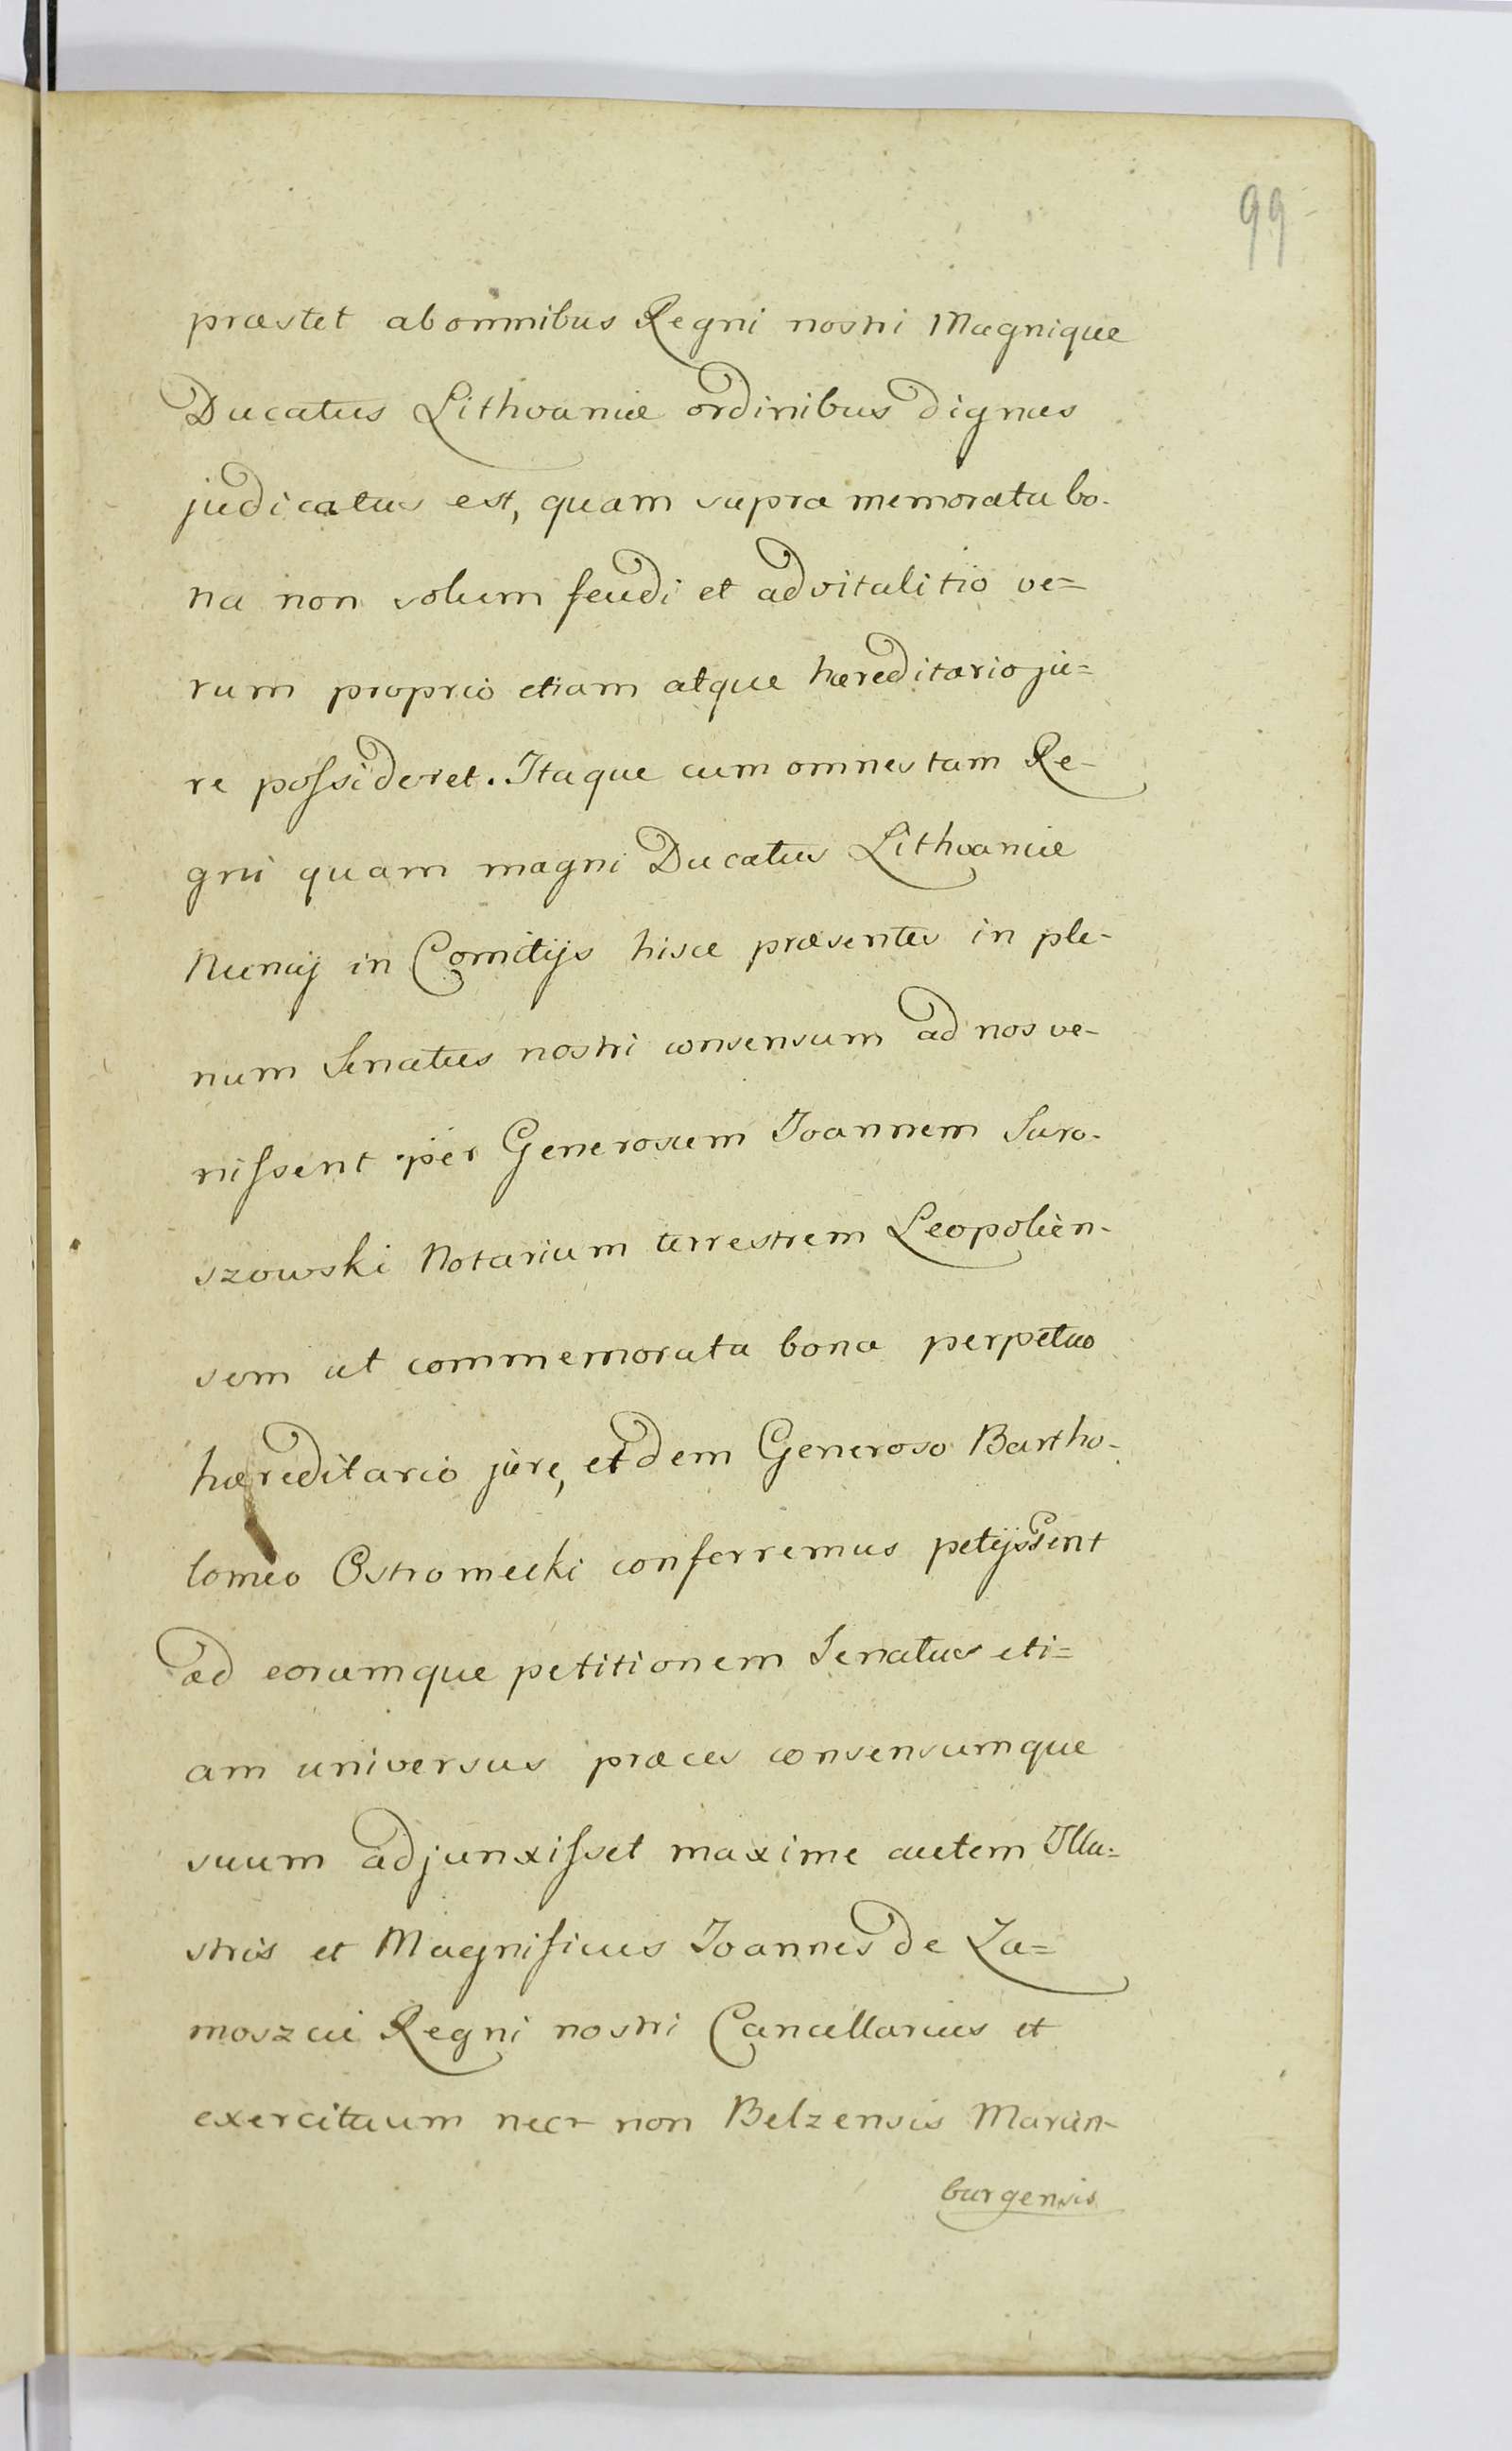 99
præstet ab omnibus Regni nostri Magnique
Ducatus Lithvaniæ ordinibus dignus
judicatus est, quam supra memorata bo-
na non solum feudi et advitalitio ve=
rum proprio etiam atque hæreditario ju=
re possideret. Itaque cum omnes tam Re-
gni quam magni Ducatus Lithvaniæ
Nuncij in Comitijs hisce præsentes in ple-
num Senatus nostri consensum ad nos ve-
nissent per Generosum Joannem Suro-
szowski Notarium terrestrem Leopolien-
sem ut commemorata bona perpetuo
hæreditario jure, eidem Generoso Bartho-
lomeo Ostromecki conferremus petijssent
ad eorumque petitionem Senatus eti=
am universus præces consensumque
suum adjunxisset maxime autem Illu=
stris et Magnificus Joannes de Za=
moszcie Regni nostri Cancellarius et
exercituum nec non Belzensis Marien-
burgensis